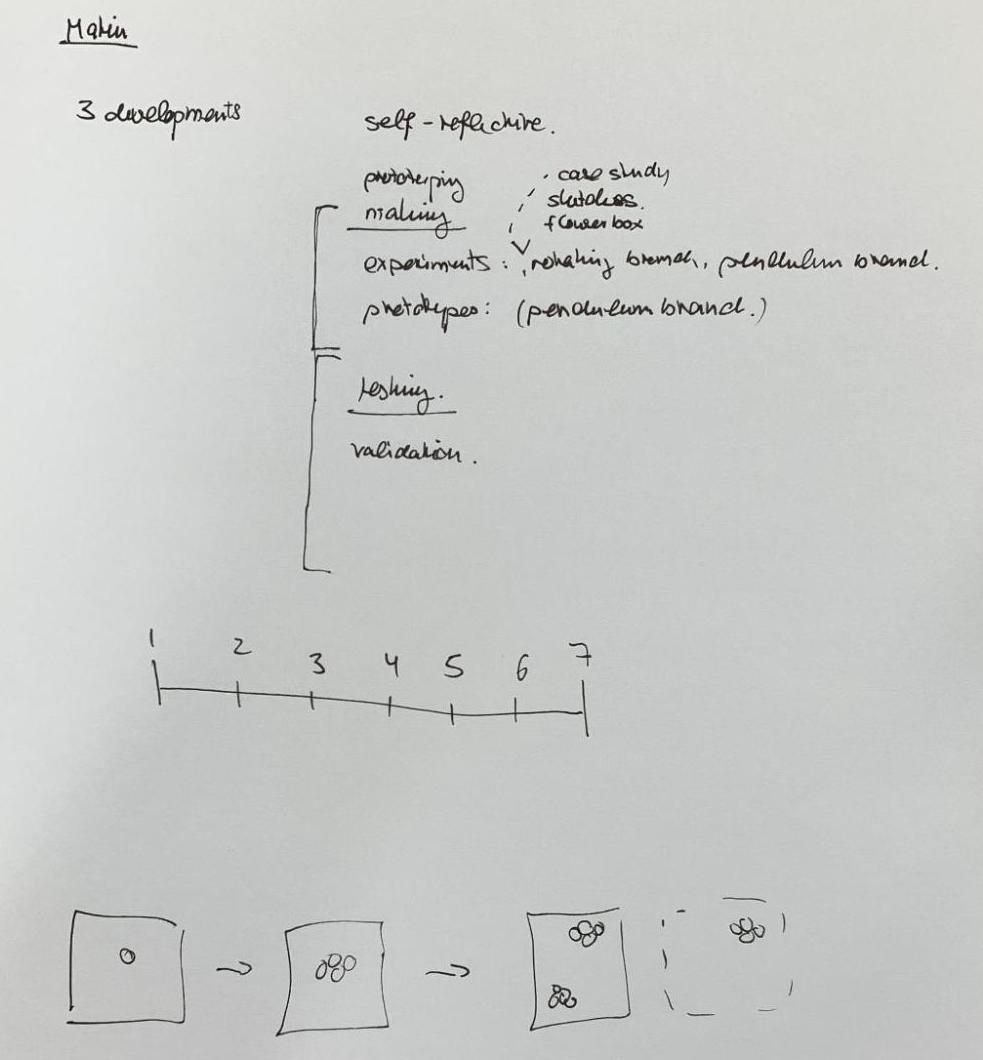 3 developments
self-reflective.
prototyping
making
case study
sketches.
flower box
experiments: rotating branch, pendulum branch.
prototypes: (pendulum branch.)
testing.
validation.
1 2 3 4 5 6 7